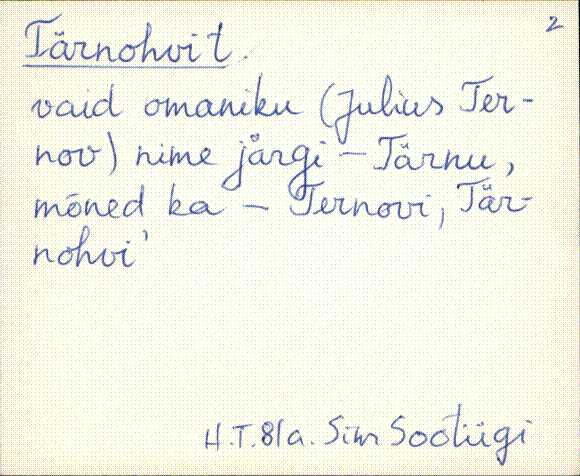 2
Tärnohvit.
vaid omaniku (Julius Ter-
nov) nime järgi – Tärnu,
mõned ka – Ternovi, Tär-
nohvi'
H.T. 81a. Sootügi